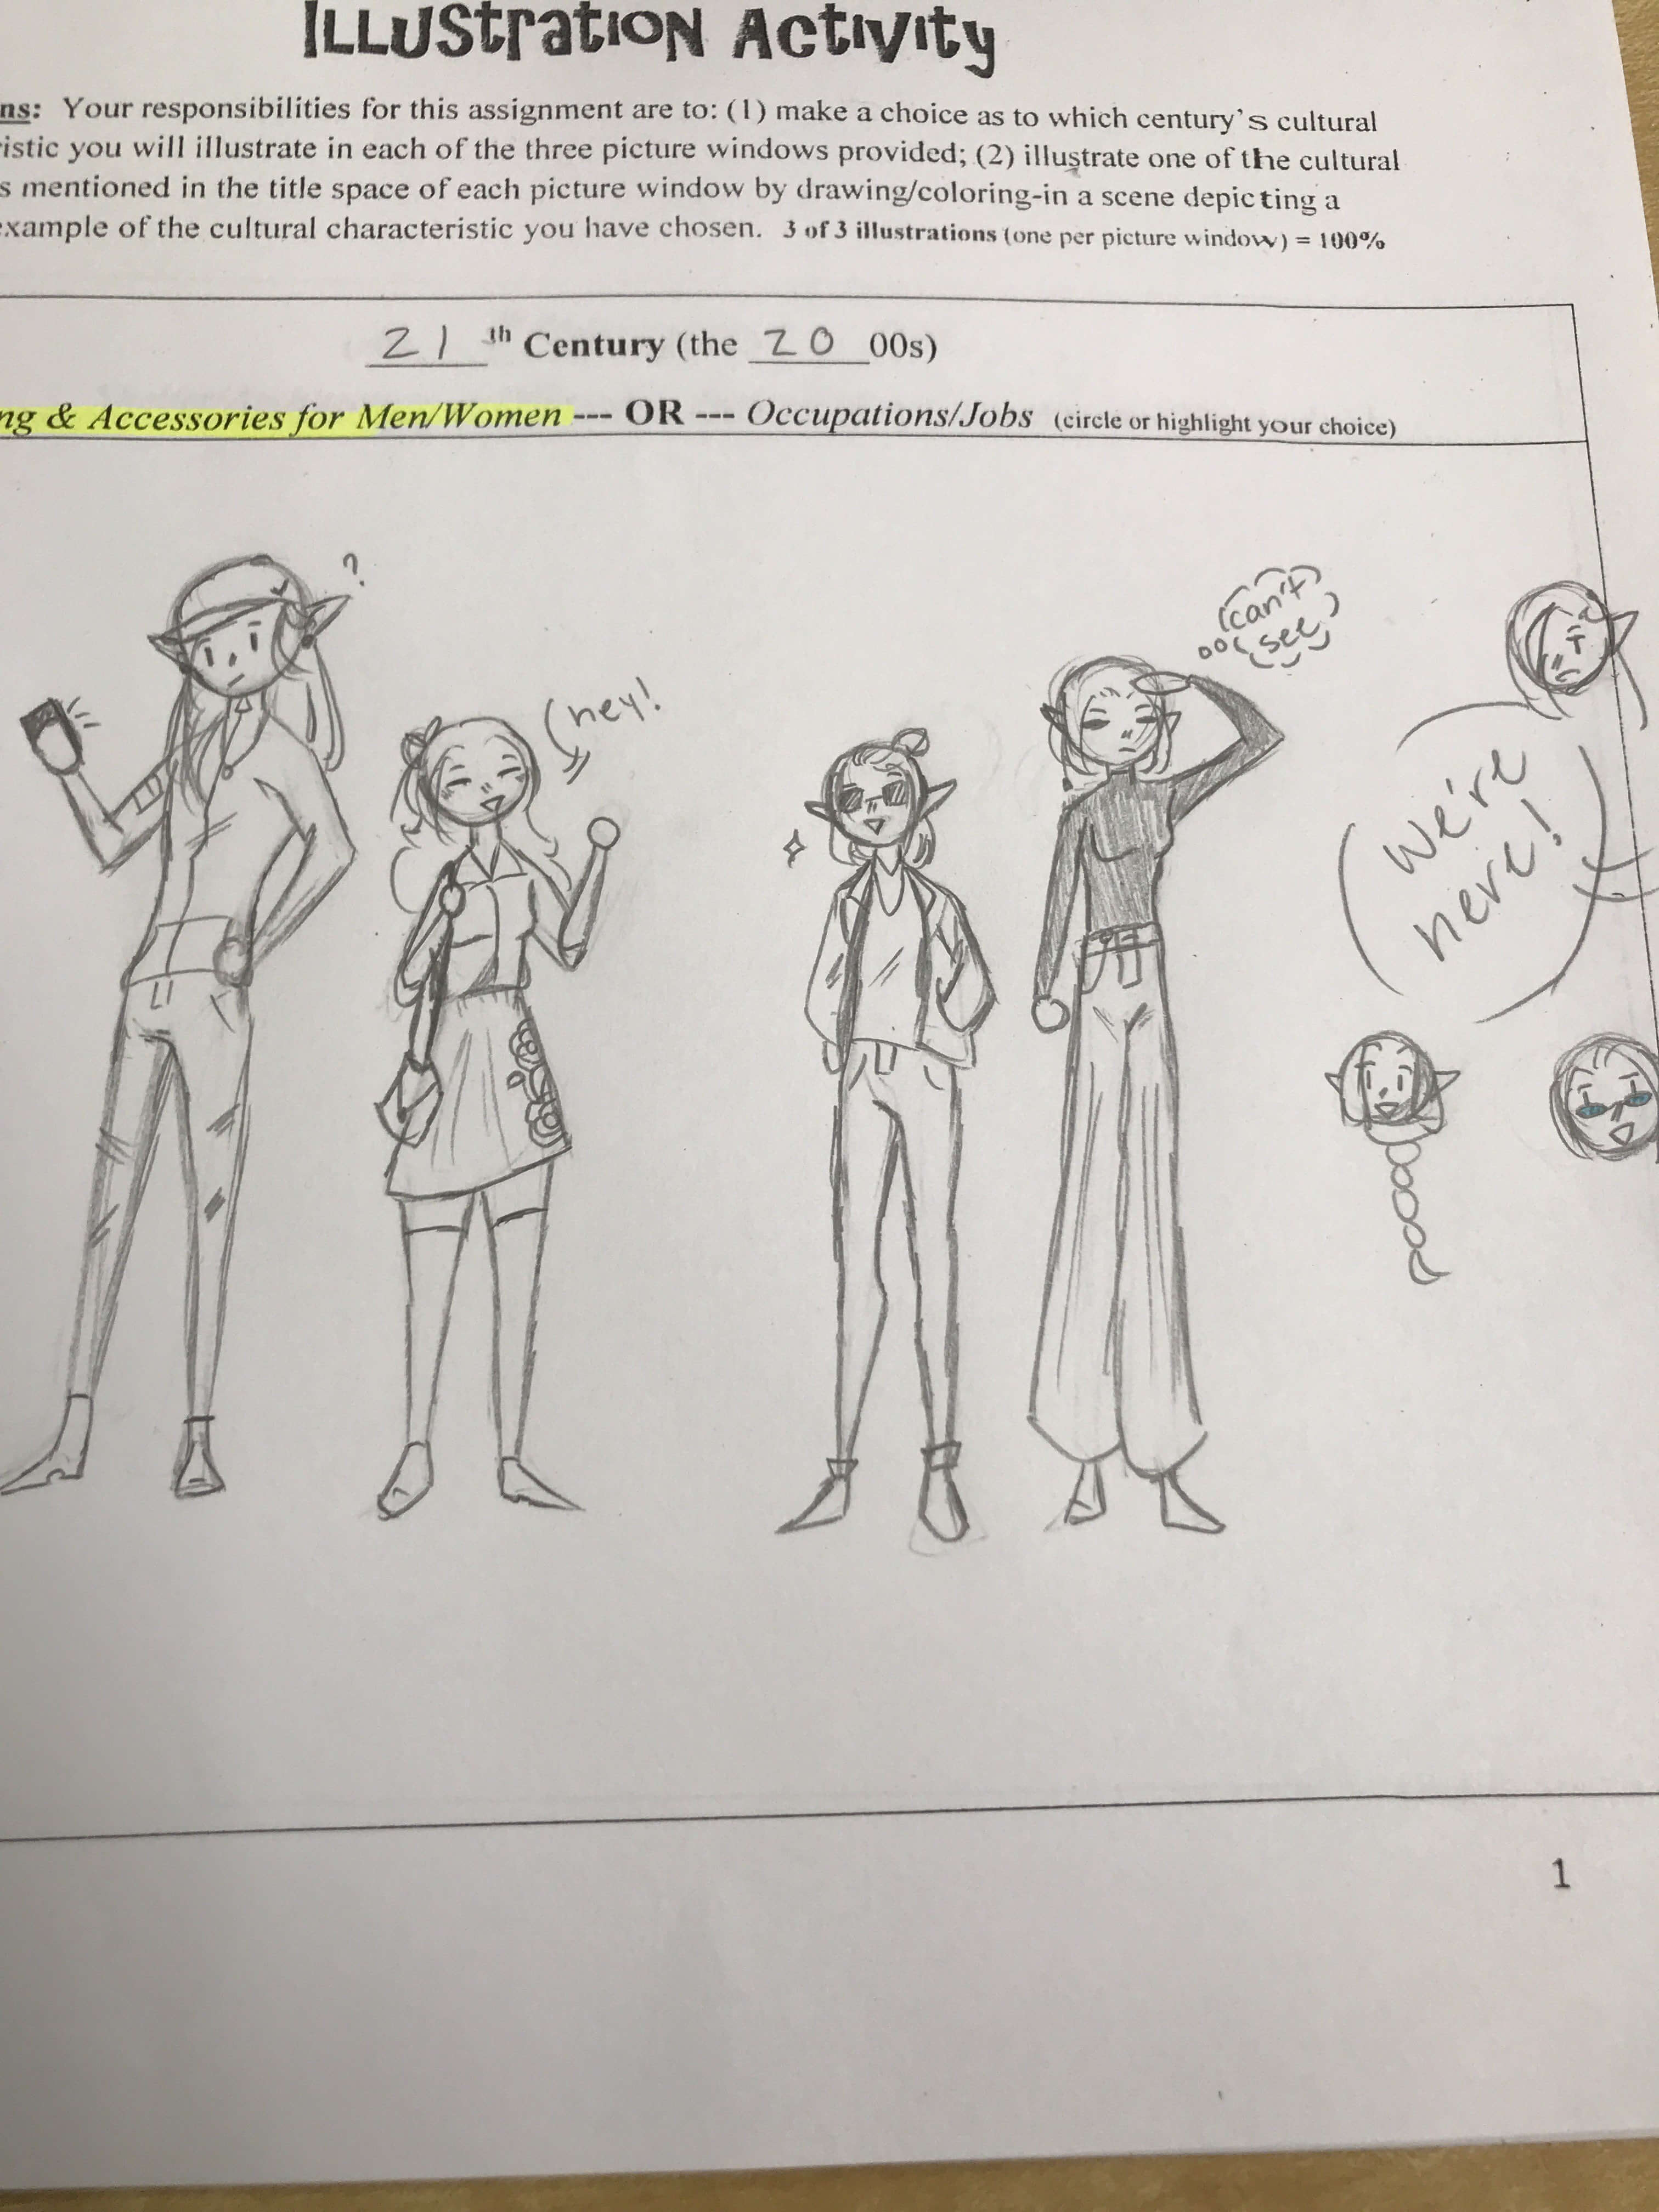 ILLUStratION Activity
ns: Your responsibilities for this assignment are to: (1) make a choice as to which century's cultural
ristic you will illustrate in each of the three picture windows provided; (2) illustrate one of the cultural
s mentioned in the title space of each picture window by drawing/coloring-in a scene depicting a
example of the cultural characteristic you have chosen. 3 of 3 illustrations (one per picture window) = 100%
21 th Century (the 20 00s)
ng & Accessories for Men/Women --- OR --- Occupations/Jobs (circle or highlight your choice)
?
hey!
can't
see
We're
here!
1